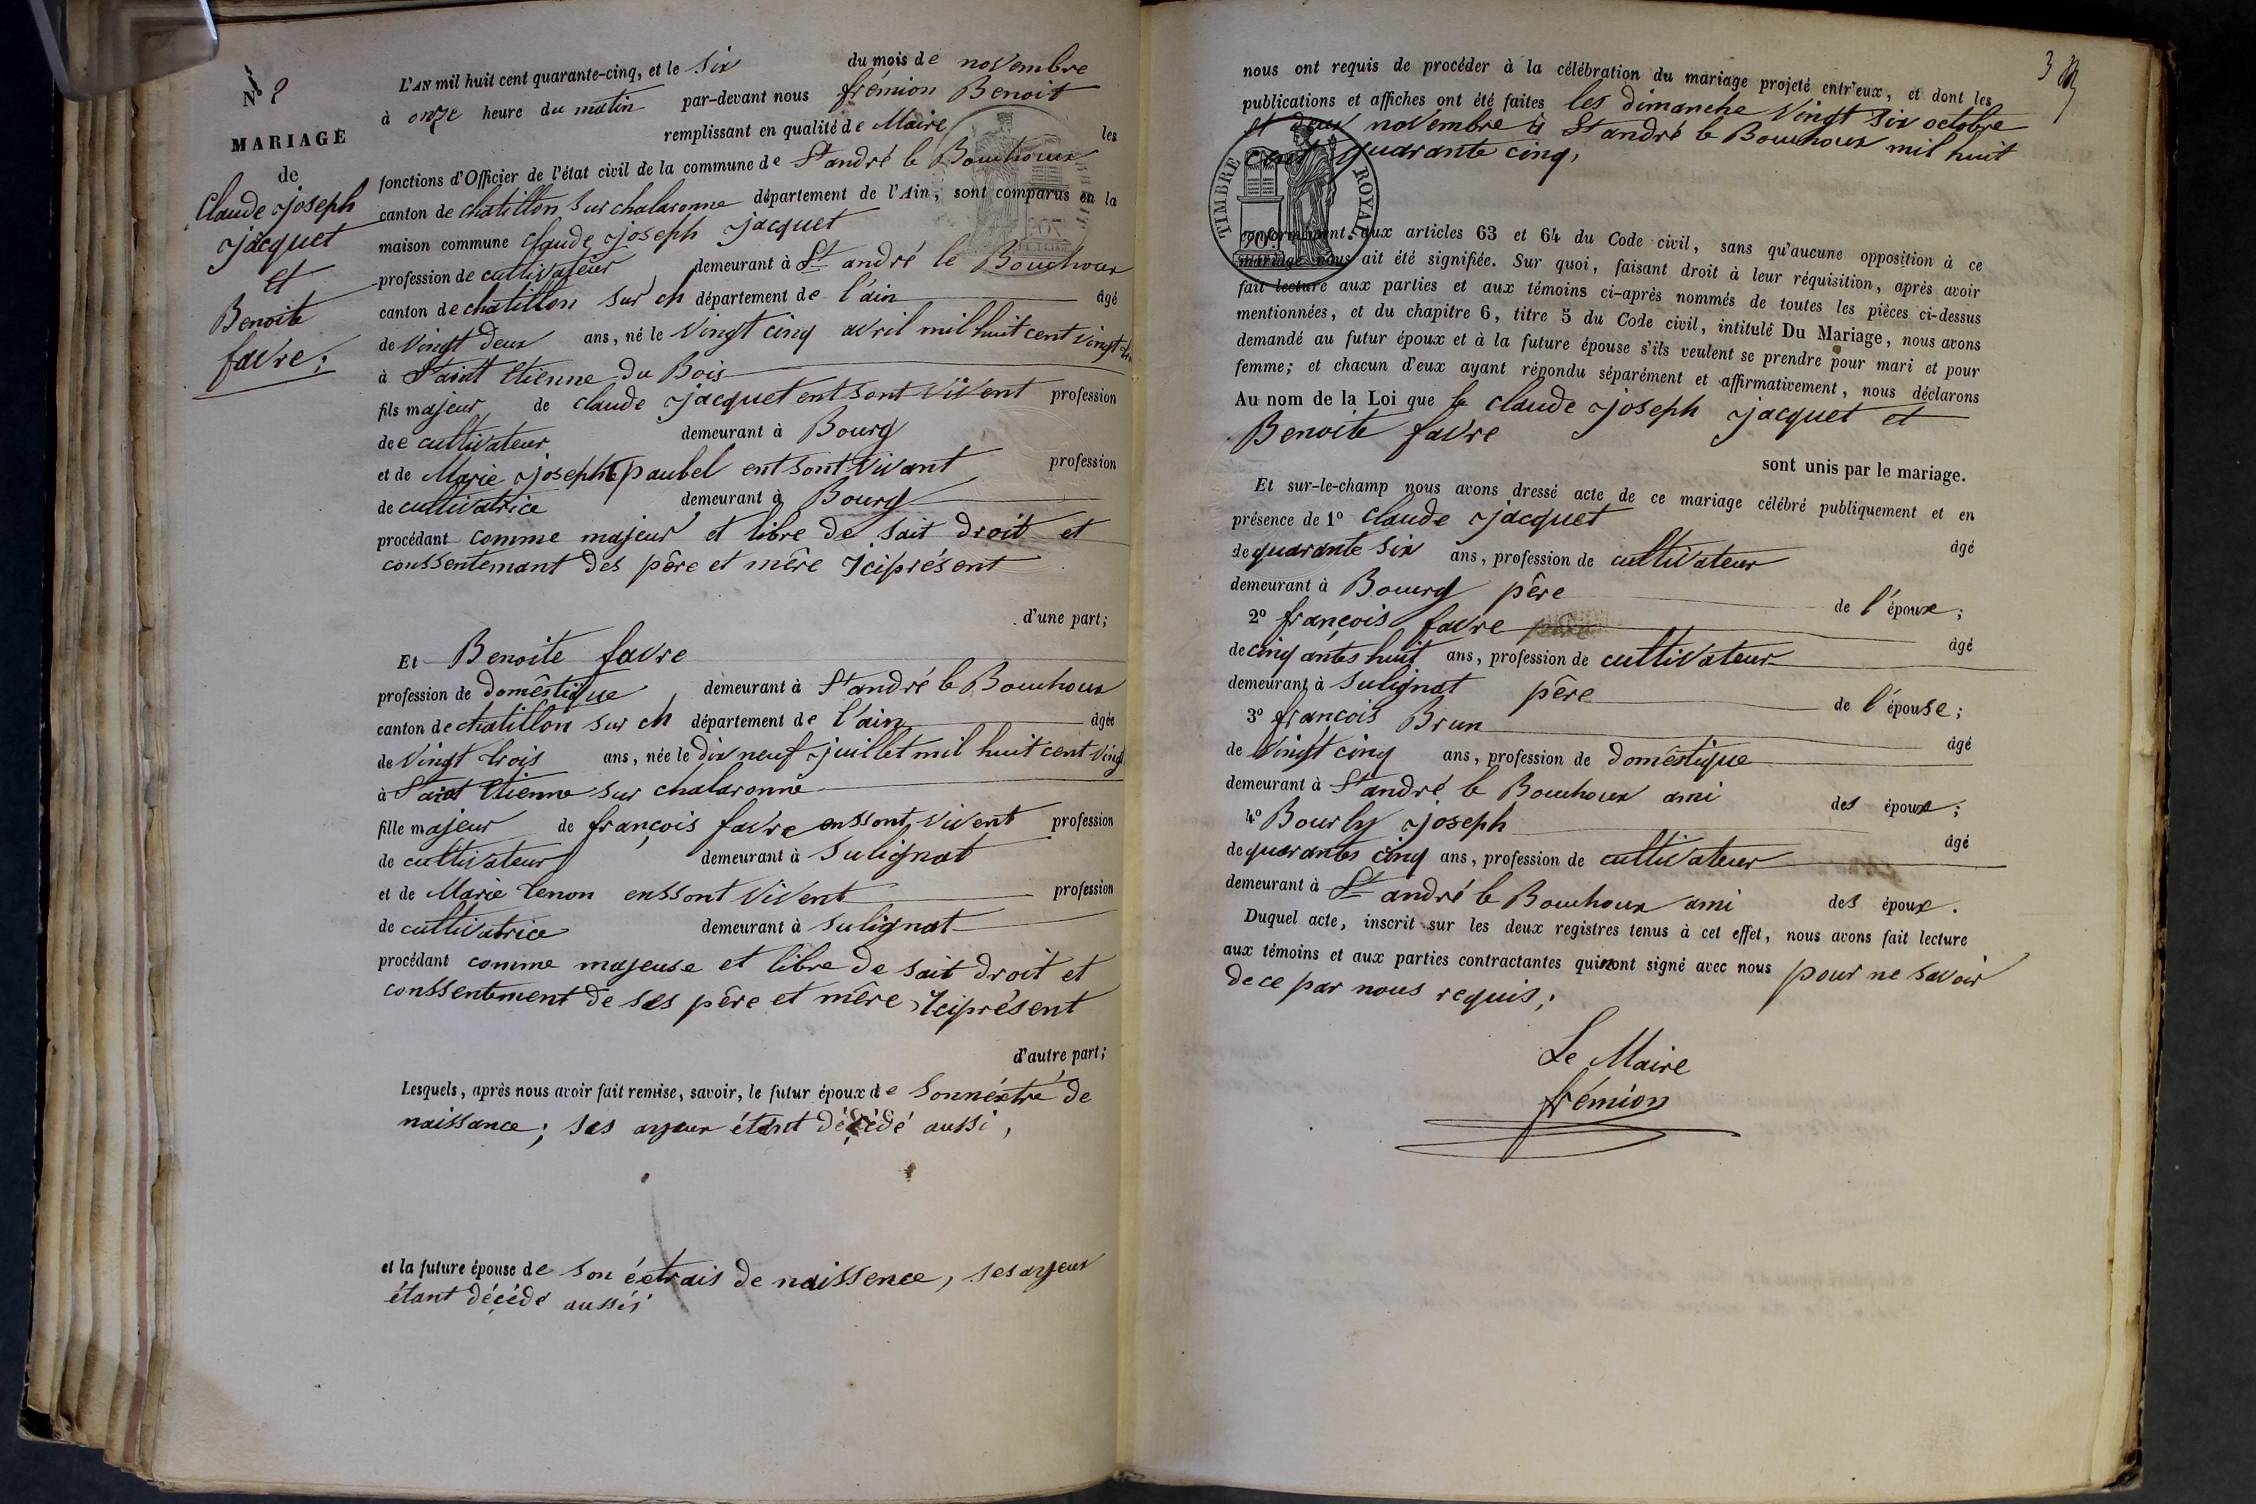 N° 2
MARIAGE
de
Claude Joseph
Jacquet
et
Benoite
favre;
L'AN mil huit cent quarante-cinq, et le Six du mois de novembre
à onze heure du matin par-devant nous frémion Benoit
remplissant en qualité de Maire les
fonctions d'Officier de l'état civil de la commune de St andré le Bouchoux
canton de chatillon sur chalaronne département de l'Ain, sont comparus en la
maison commune Claude Joseph Jacquet
profession de cultivateur, demeurant à St andré le Bouchoux
canton de chatillon sur ch département de l'ain âgé
de vingt deux ans, né le vingt cinq avril mil huit cent vingt
à Saint Etienne du Bois
fils majeur de claude Jacquet ent sont vivent profession
de e cultivateur demeurant à Bourg
et de Marie Josephte paubel ent sont vivant profession
de cultivatrice demeurant à Bourg
procédant comme majeur et libre de sait droit et
conssentemant des père et mère Iciprésent
d'une part;
Et Benoite favre
profession de domêstique, demeurant à St andré le Bouchoux
canton de chatillon sur ch département de l'ain âgée
de vingt trois ans, née le dix neuf juillet mil huit cent vingt
à Saint Etienne sur chalaronne
fille majeur de françois favre enssont vivent profession
de cultivateur demeurant à Sulignat
et de Marie tenon enssont vivent profession
de cultivatrice demeurant à Sulignat
procédant comme majeuse et libre de sait droit et
conssentement de ses père et mère Iciprésent
d'autre part;
Lesquels, après nous avoir fait remise, savoir, le futur époux de Sonnéxtré de
naissance; ses ayeux étant décédé aussi,
et la future épouse de son éxtrais de naissence, ses ayeux
étant décédé aussi
3
nous ont requis de procéder à la célébration du mariage projeté entr'eux, et dont les
publications et affiches ont été faites les dimanche vingt six octobre
et deux novembre à St andré le Bouchoux mil huit
cent quarante cinq,
TIMBRE ROYAL
70
conformément aux articles 63 et 64 du Code civil, sans qu'aucune opposition à ce
mariage nous ait été signifiée. Sur quoi, faisant droit à leur réquisition, après avoir
fait lecture aux parties et aux témoins ci-après nommés de toutes les pièces ci-dessus
mentionnées, et du chapitre 6, titre 5 du Code civil, intitulé Du Mariage, nous avons
demandé au futur époux et à la future épouse s'ils veulent se prendre pour mari et pour
femme; et chacun d'eux ayant répondu séparément et affirmativement, nous déclarons
Au nom de la Loi que le claude Joseph Jacquet et
Benoite favre
sont unis par le mariage.
Et sur-le-champ nous avons dressé acte de ce mariage célébré publiquement et en
présence de 1° Claude Jacquet âgé
de quarante six ans, profession de cultivateur
demeurant à Bourg père de l'époux;
2° françois favre âgé
de cinq antes huit ans, profession de cultivateur
demeurant à Sulignat père de l'épouse;
3° françois Brun âgé
de vingt cinq ans, profession de domêstique
demeurant à St andré le Bouchoux ami des époux;
4° Bourly Joseph âgé
de quarantes cinq ans, profession de cultivateur
demeurant à St andré le Bouchoux ami des époux.
Duquel acte, inscrit sur les deux registres tenus à cet effet, nous avons fait lecture
aux témoins et aux parties contractantes qui n'ont signé avec nous pour ne savoir
de ce par nous requis;
Le Maire
frémion